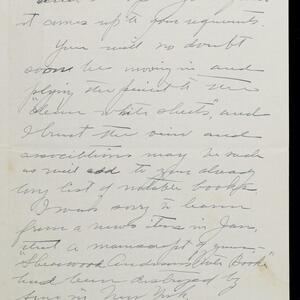 it comes up to your requirements.
You will no doubt
soon be moving in and
plying the pencil to the
"clean white sheets", and
I trust the view and
associations may be such
as will add to your already
long list of notable books.
I was sorry to learn
from a news item in Jan,
that a manuscript of yours—
"Sherwood Anderson's Note Book"
had been destroyed by
fire in New York